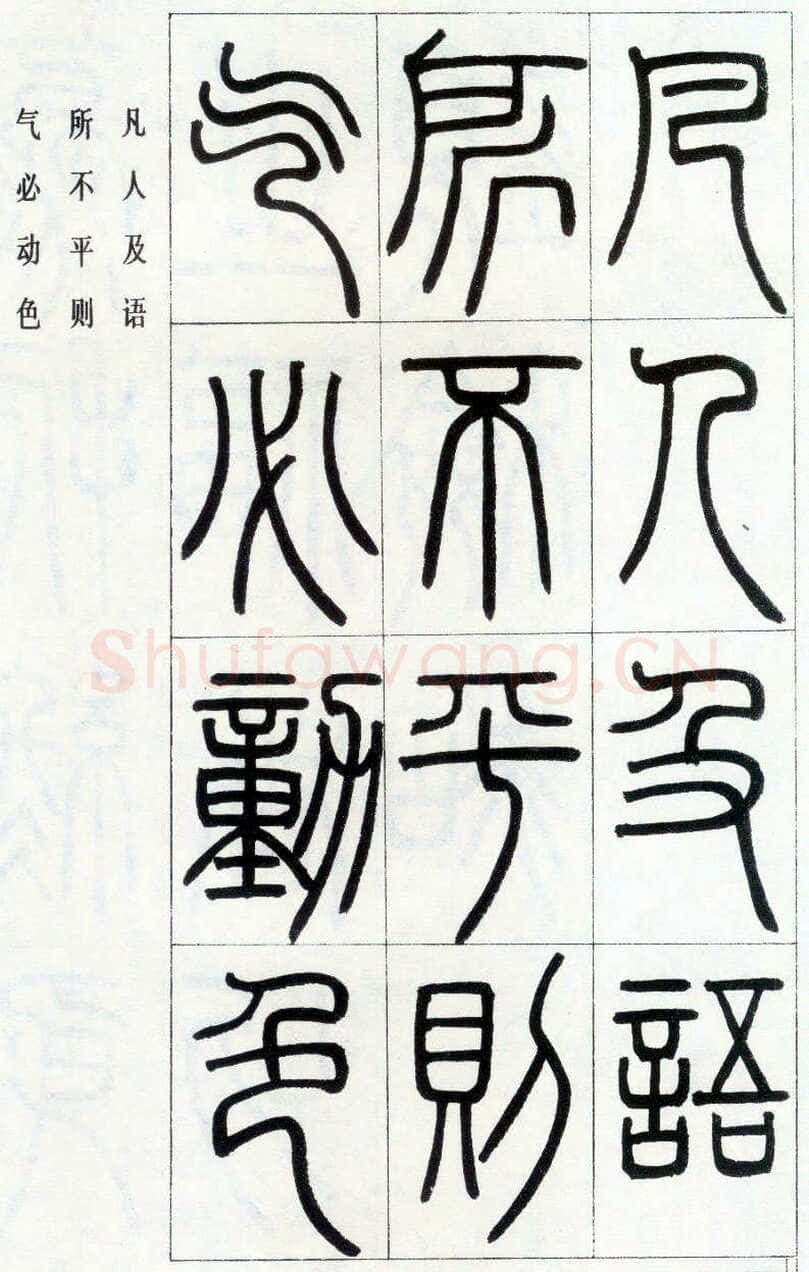 凡人及語
所不平則
气必動色
凡人及语
所不平则
气必动色
Shufawang.CN